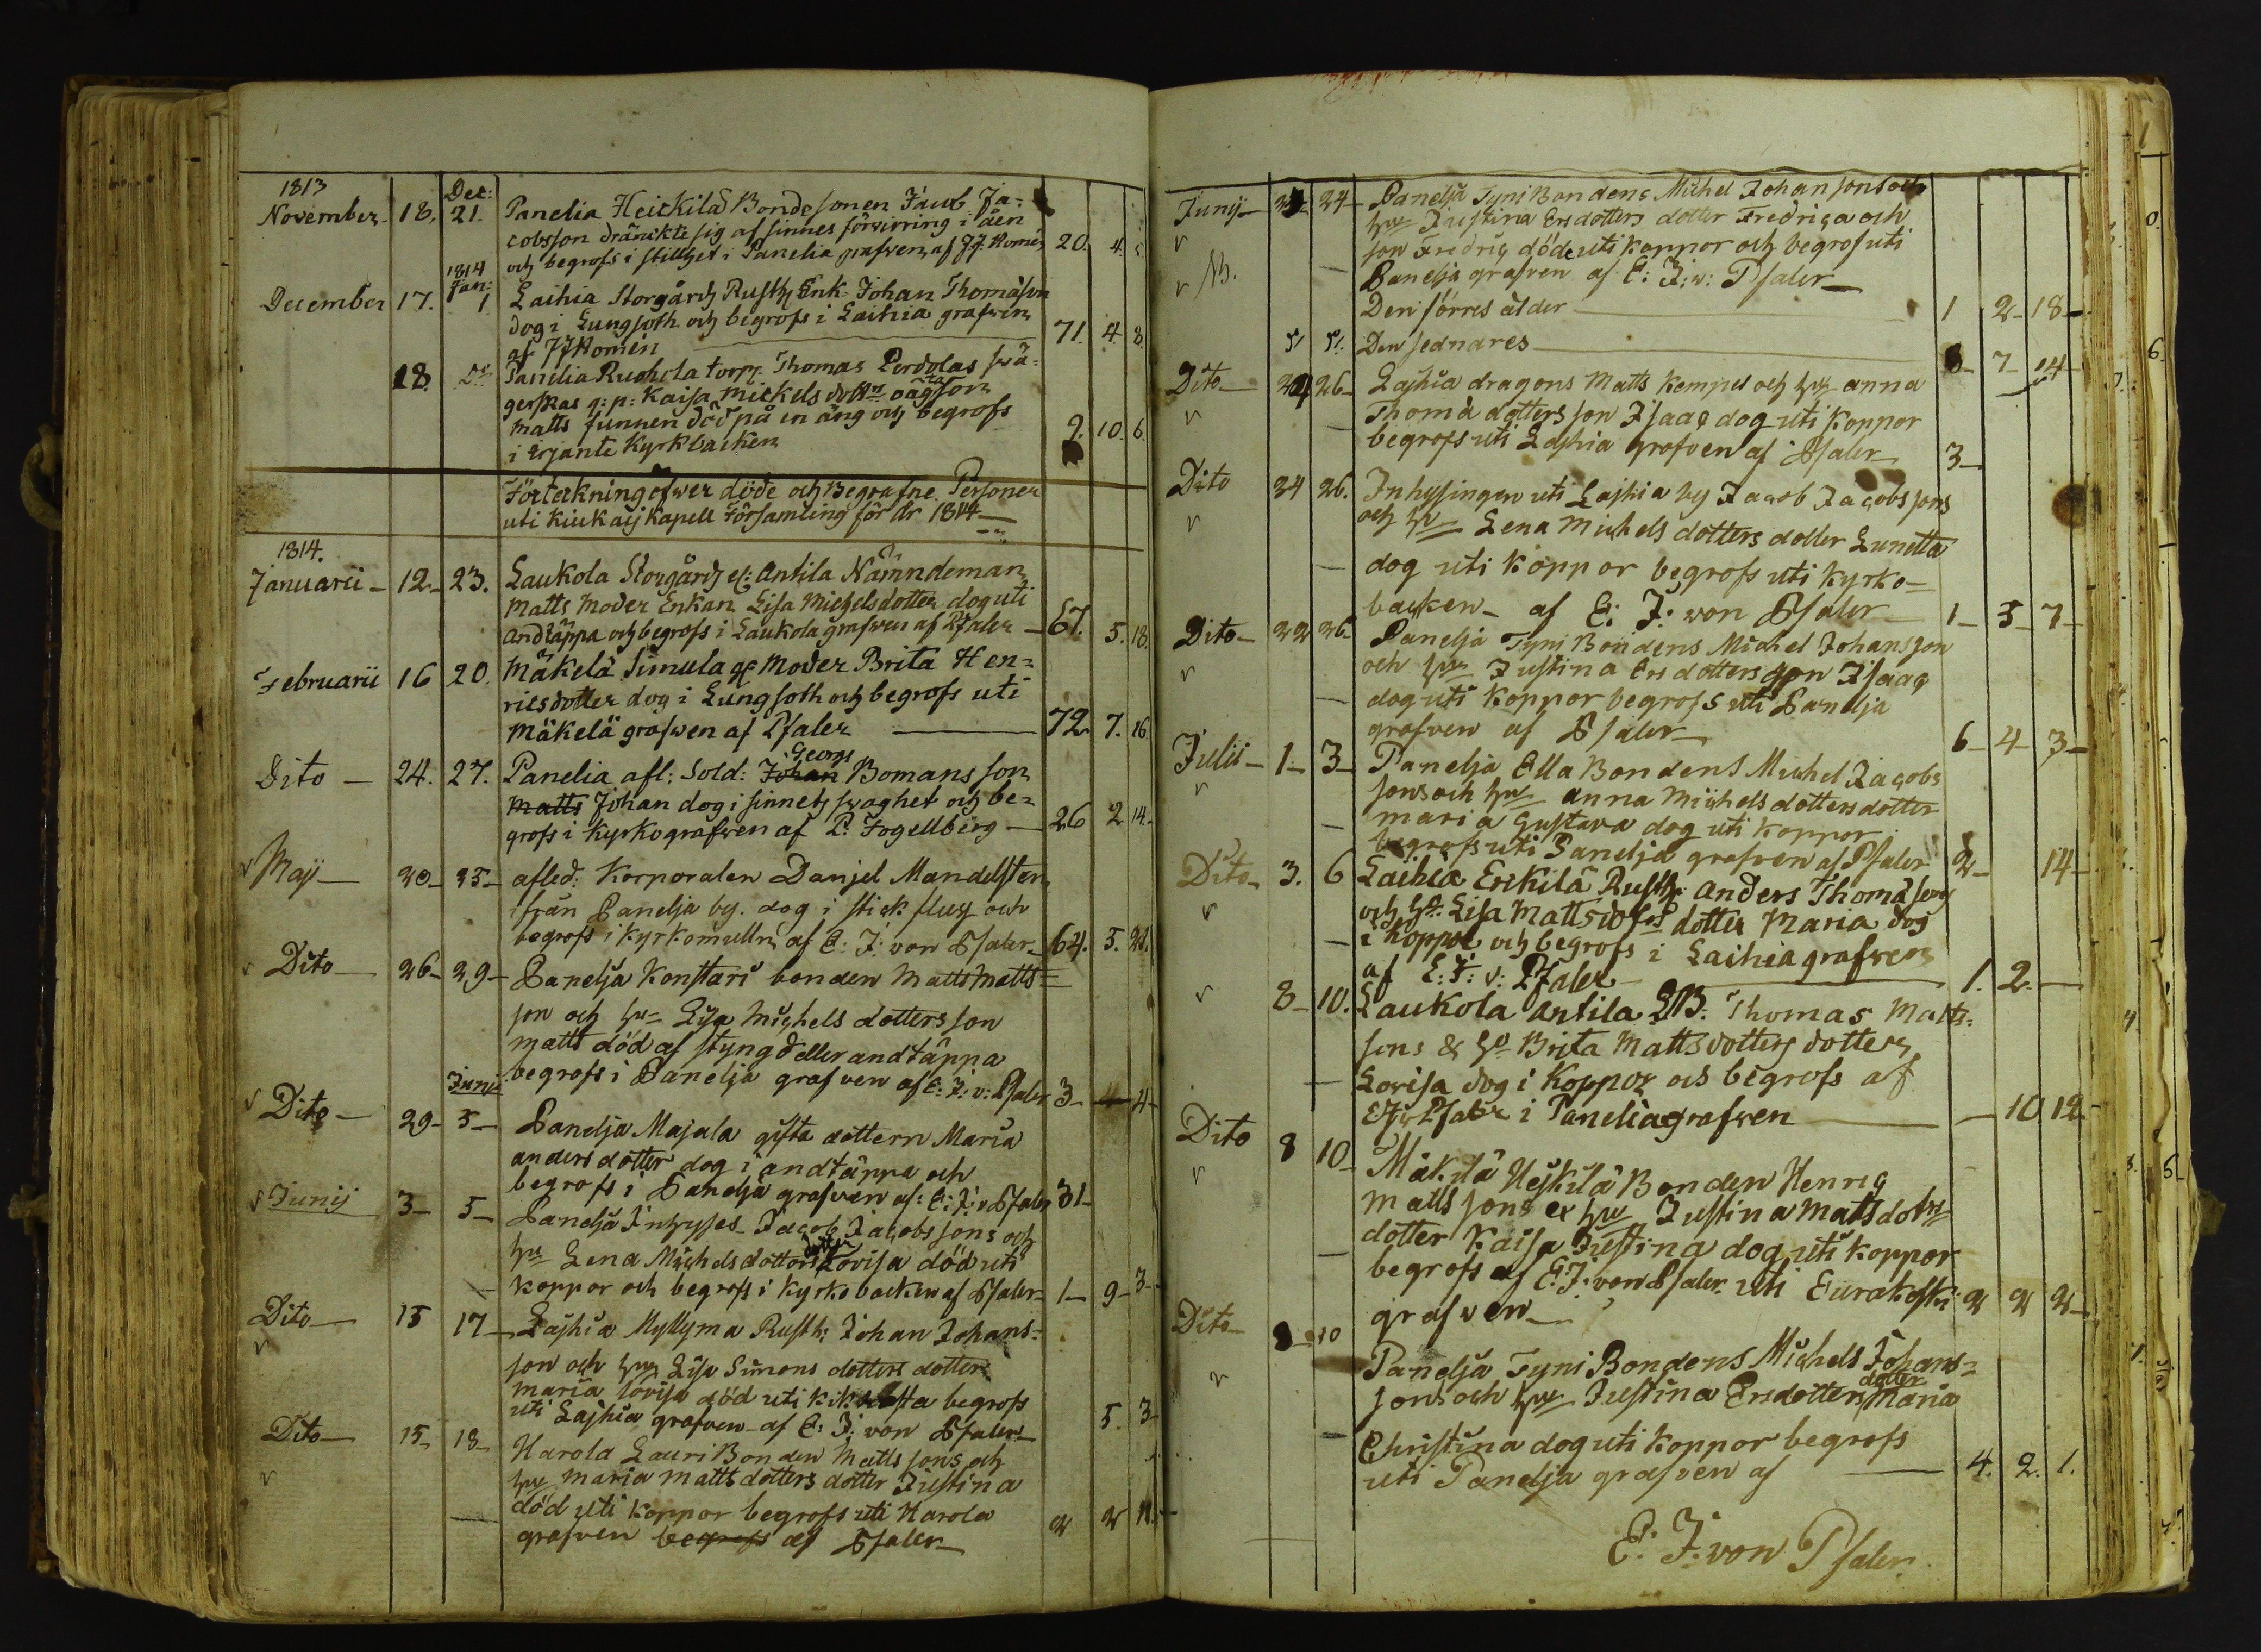 1813
Dec:
November 18. 21. Panelia Heickilä Bondesonen Jacob Ja=
cobsson dränckte sig af sinnes förvirring i åen
och begrofs i stillhet i Panelia grafven af JJ Homén 20. 4. 5.
1814
Jan:
December 17. 1. Laihia Storgårds Rusth: Enk. Johan Thomæson
dog i Lungsoth och begrofs i Laihia grafven
af JJHomén 71. 4. 8.
18. Do Panelia Ruohola torp: Thomas Perdolas swä=
gerskas q: p: Kaisa Mickels dottrs oägta son
Matts funnen död på en äng och begrofs
i Erjante Kyrkbacken 9. 10. 6.
Förteckning öfwer döde och Begrafne Personer
uti Kiukais Kapell Församling för År 1814
1814.
Januarii 12 23. Laukola Storgårds el: Antila Nämndeman
Matts Moder Enkan Lisa Michelsdotter dog uti
andtäppa och begrofs i Laukola grafven af Pfaler 67. 5. 18
Februarii 16 20. Mäkelä Simula Moder Brita Hen=
ricsdotter dog i Lungsoth och begrofs uti
Mäkelä grafwen af Pfaler 72. 7. 16
Georg
Dito 24. 27. Panelia afl: Sold: Johan Bomans son
Matts Johan dog i sinnets swaghet och be=
grofs i Kyrkografwen af P. Fogellberg 26 2 14.
Maji 20 25 afled: Korporalen Danjel Mandelsten
ifrån Panelja by. dog i stick flus och
begrofs i Kyrkomulln af E: J: von Pfaler 64. 5. 21.
Dito 26 29 Panelja Konstari bonden Matts Matts=
son och hu Lisa Michels dotters son
matts död af styng eller andtäppa
begrofs i Panelja grafven af E: J: v: Pfaler 3 4 4
Junij
Dito 29 5 Panelja Majala gifta dottern Maria
anders dotter dog i andtäppa och
begrofs i Panelja grafven af: E: J: v Pfaler 31
Junij 3 5 Panelja Inhyses Jacob Jacobs sons och
hu Lena Michelsdotters dotter Lovisa död uti
koppor och begrofs i Kyrkobacken af Pfaler 1 9 3
Dito 15 17 Lajhia Myllyma Rusth: Johan Johans=
son och hu Lisa Simons dotters dotter
maria lovisa död uti kikhosta begrofs
uti Lajhia grafven af E: J: von Pfaler 5. 3
Dito 15 18 Harola Lauri Bonden Matts sons och
hu maria Matts dotters dotter Justina
död uti koppor begrofs uti Harola
grafven begrofs af Pfaler 2 2 11.
Junij 24 Panelja Tyni Bondens Michel Johansons och
hu Justina Ersdotters dotter Fredrica och
son Fredric döde uti koppor och begrof uti
Panelja grafven af E: J: v: Pfaler
Den förres ålder 1 2 18
Den sednares 7 14
Dito 24 26 Lajhia dragons Matts Kempes och hu anna
Thomä dotters son Isaac dog uti koppor
begrofs uti Lajhia grafven af Pfaler 3
Dito 24 26. Inhysingen uti Lajhia by Jacob Jacobs sons
och hu Lena Michels dotters dotter Lunetta
dog uti koppor begrofs uti kyrko=
backen af E: J: von Pfaler 1 5 7
Dito 22 26 Panelja Tyni Bondens Michel Johansson
och hu Justina Ersdotters son Isaac
dog uti koppor begrofs uti Panelja
grafven af Pfaler 6 4 3
Julii 1 3 Panelja Ella Bondens Michel Jacobs
sons och hu anna Michels dotters dotter
maria Gustava dog uti koppor
begrofs uti Panelja grafven af Pfaler 2 14
Dito 3. 6 Laihia Erckilä Rusth: Anders Thomä sons
och ho: Lisa Mattsdotrs dotter Maria dog
i Koppor och begrofs i Laihia grafven
af E: J: v: Pfaler 1. 2.
8 10. Laukola Antila Thomas Matts=
sons & ho Brita Mattsdotters dotter
Lovisa dog i Koppor och begrofs af
EJv Pfaler i Panelia grafven 10 12
Dito 8 10 Mäkilä Heikilä Bonden Henric
Matts sons & hu Justina Matts dotrs
dotter Kaisa Justina dog uti koppor
begrofs af E: J: von Pfaler uti Eurakoski
grafven 2 2 2
Dito 8 10 Panelja Tyni Bondens Michels Johans=
sons och hu Justina Ersdotters dotter Maria
Christina dog uti koppor begrofs
uti Panelja grafven af 4. 2. 1.
E: J: von Pfaler